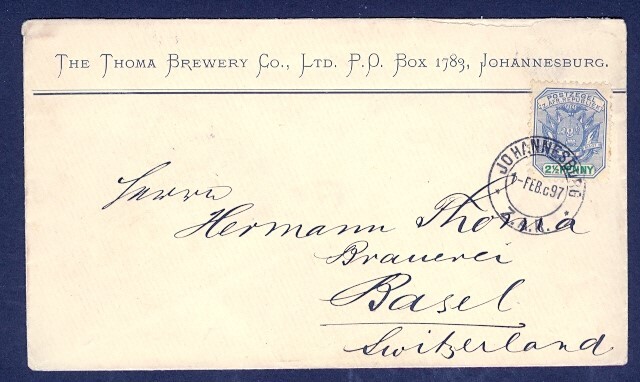 The Thoma Brewery Co., Ltd. P.O. Box 1783, Johannesburg.
POSTZEGEL
Z. AFR. REPUBLIEK
2½ PENNY
JOHANNESBURG
FEB.C97
Z.A.R.
Herrn
Hermann Thoma
Brauerei
Basel
Switzerland